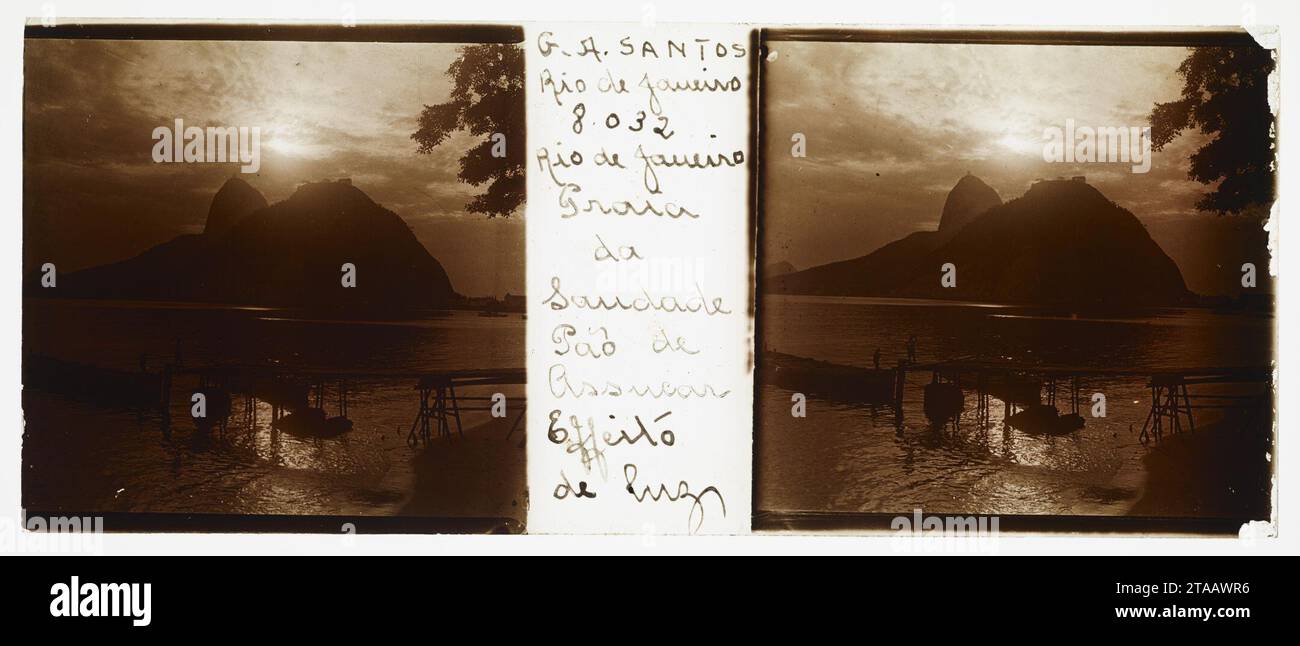 G. A. SANTOS
Rio de Janeiro
8.032
Rio de Janeiro
Praia
da
Saudade
Pão de
Assucar
Effeito
de luz
alamy
Image ID: 2TAAWR6
www.alamy.com